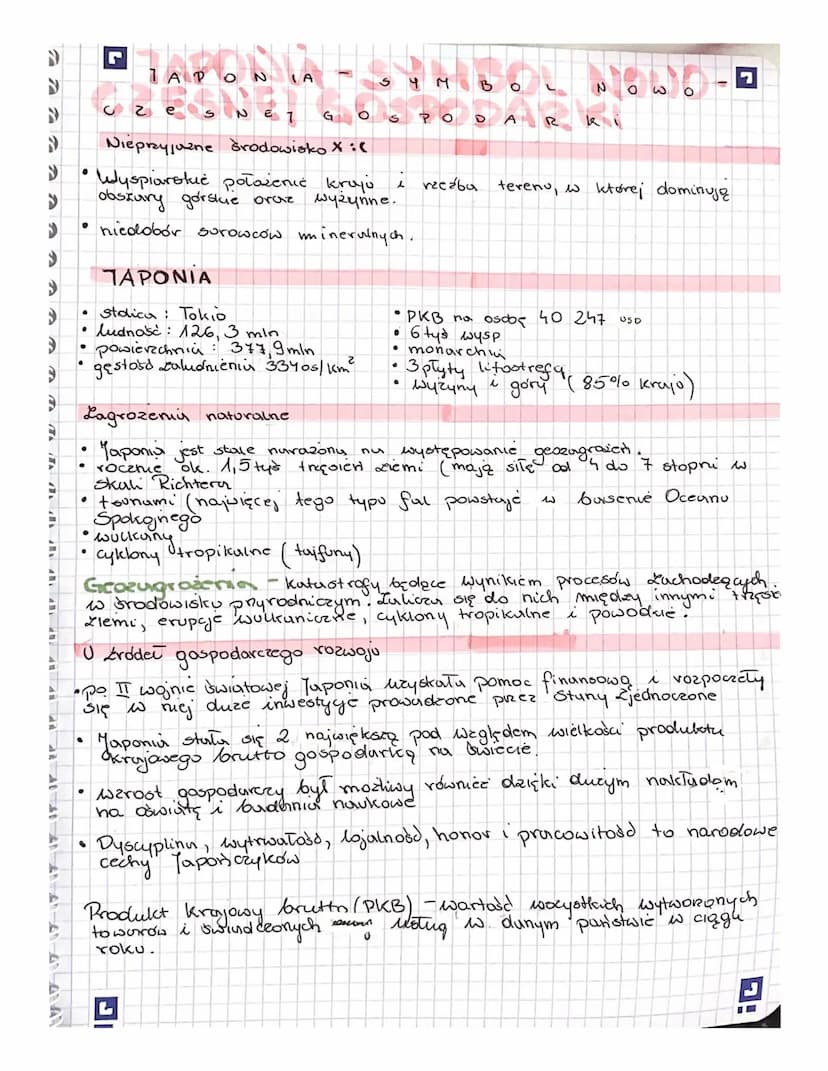 JAPONIA - SYMBOL NOWO-
CZESNEJ GOSPODARKI
Nieprzyjazne środowisko X :(
• Wyspiarskie położenie kraju i rzeźba terenu, w której dominują
obszary górskie oraz wyżynne.
• niedobór surowców mineralnych.
JAPONIA
• stolica : Tokio
• ludność : 126,3 mln
• powierzchnia : 377,9mln
• gęstość zaludnienia 334os/km²
• PKB na osobę 40 247 USD
• 6 tyś wysp
• monarchia
• 3 płyty litosfrefą
• wyżyny i góry (85% kraju)
Zagrożenia naturalne
• Japonia jest stale narażona na występowanie geozagrożeń.
• rocznie ok. 1,5 tyś trzęsień ziemi (mają siłę od 4 do 7 stopni w
skali Richtera
• tsunami (najwięcej tego typu fal powstaje w basenie Oceanu
Spokojnego
• wulkany
• cyklony tropikalne (tajfuny)
Geozagrożenia - katastrofy będące wynikiem procesów zachodzących
w środowisku przyrodniczym. Zalicza się do nich między innymi trzęsie
ziemi, erupcje wulkaniczne, cyklony tropikalne i powodzie.
U źródeł gospodarczego rozwoju
• po II wojnie światowej Japonia uzyskała pomoc finansową i rozpoczęły
się w niej duże inwestycje prowadzone przez Stany Zjednoczone
• Japonia stała się 2 największą pod względem wielkości produktu
krajowego brutto gospodarką na świecie.
• wzrost gospodarczy był możliwy również dzięki dużym nakładom
na oświatę i badania naukowe
• Dyscyplina, wytrwałość, lojalność, honor i pracowitość to narodowe
cechy Japończyków
Produkt krajowy brutto (PKB) - wartość wszystkich wytworzonych
towarów i świadczonych usług w danym państwie w ciągu
roku.